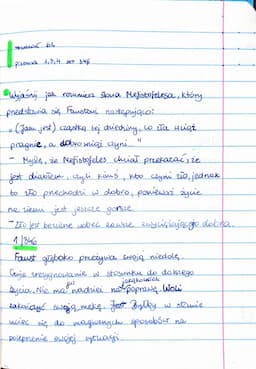 pisemnie 1,2,4 str 346
Wyjaśnij jak rozumiesz słowa Mefistofelesa, który
przedstawia się Faustowi następująco:
„(Jam jest) cząstką tej dziedziny, co zła wciąż
pragnie, a dobro wciąż czyni..."
- Myślę, że Mefistofeles chciał przekazać, że
jest diabłem, czyli kimś, kto czyni zło, jednak
to zło przechodzi w dobro, ponieważ życie
na ziemi jest jeszcze gorsze.
- Zło jest bezsilne wobec zawsze zwyciężającego dobra.
1/346
Faust głęboko przeżywa swoją niedolę.
Czuje zrezygnowanie w stosunku do dalszego
życia. Nie ma już nadziei na jakąkolwiek poprawę. Woli
zakończyć swoją mękę. Jest
uciec się do magicznych sposobów na
polepszenie swojej sytuacji.